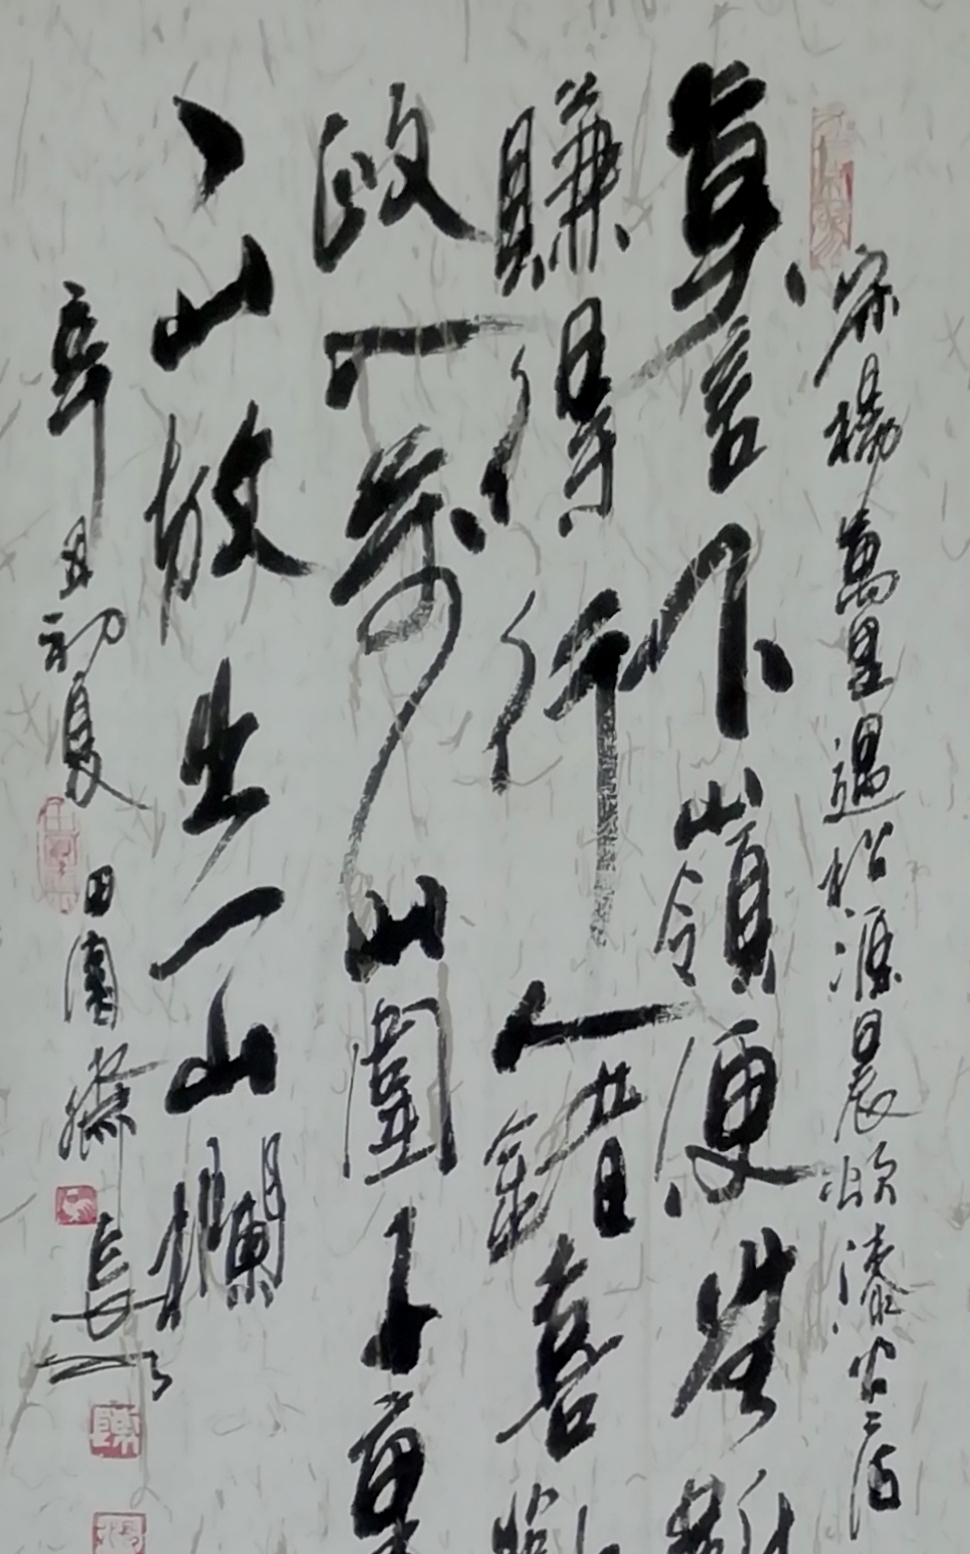 宋楊萬里過松源晨炊漆公店
莫言下嶺便無難
賺得行人錯喜歡
政入萬山圍子裏
一山放出一山攔
辛丑初夏
田園齋